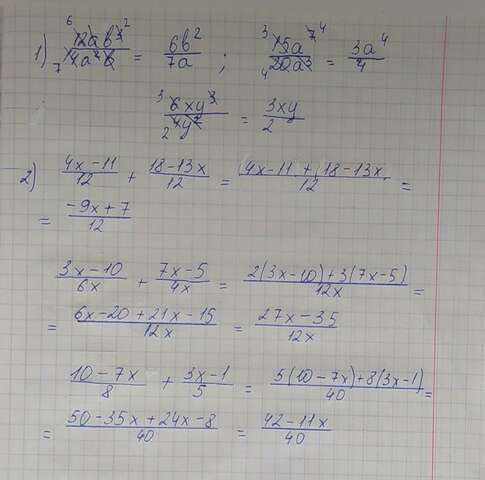 1) 12ab³/14a²b = 6b²/7a ; 15a⁷/20a³ = 3a⁴/4
6xy³/4y² = 3xy/2
2) 4x-11/12 + 18-13x/12 = 4x-11+18-13x/12 =
= -9x+7/12
3x-10/6x + 7x-5/4x = 2(3x-10)+3(7x-5)/12x =
= 6x-20+21x-15/12x = 27x-35/12x
10-7x/8 + 3x-1/5 = 5(10-7x)+8(3x-1)/40 =
= 50-35x+24x-8/40 = 42-11x/40